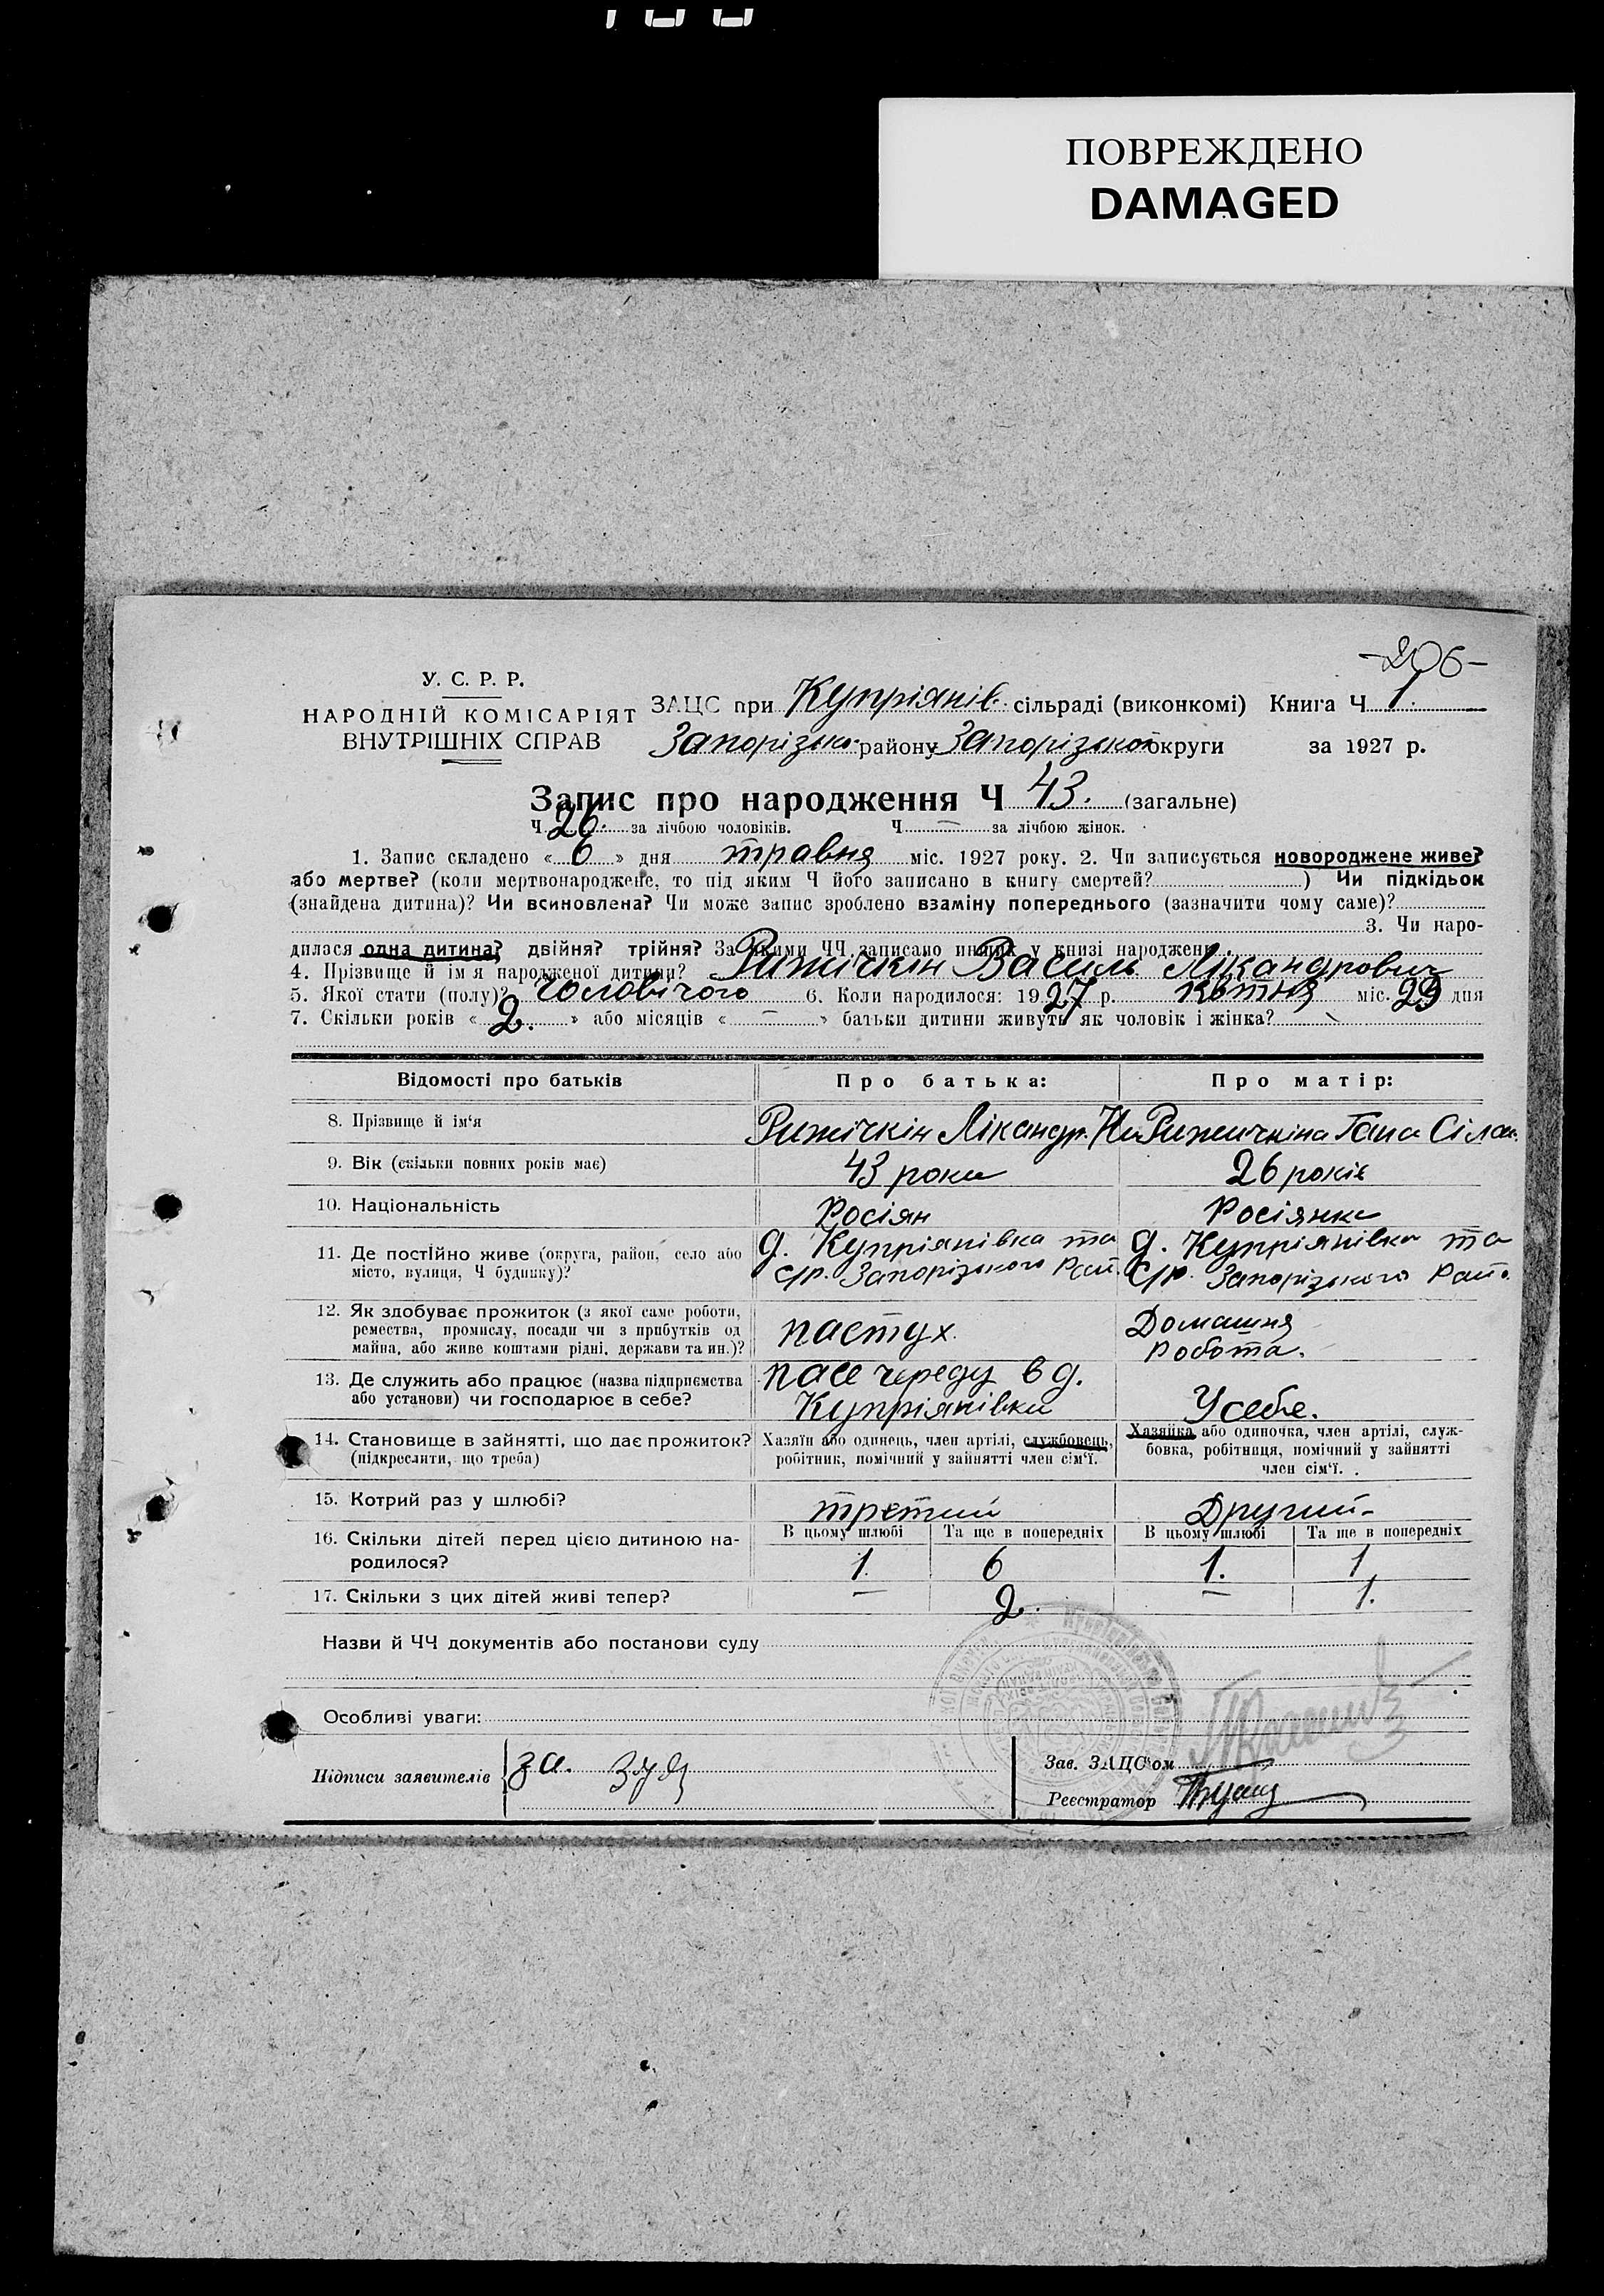 ПОВРЕЖДЕНО
DAMAGED
-206-
У. С. Р. Р.
НАРОДНІЙ КОМІСАРІЯТ
ВНУТРІШНІХ СПРАВ
ЗАЦС при Купріянів. сільраді (виконкомі) Книга Ч 1.
Запорізько. району Запорізької округи за 1927 р.
Запис про народження Ч 43. (загальне)
Ч 26. за лічбою чоловіків. Ч — за лічбою жінок.
1. Запис складено « 6 » дня травня міс. 1927 року. 2. Чи записується новороджене живе?
або мертве? (коли мертвонароджене, то під яким Ч його записано в книгу смертей? ) Чи підкідьок
(знайдена дитина)? Чи всиновлена? Чи може запис зроблено взаміну попереднього (зазначити чому саме)?
3. Чи наро-
дилася одна дитина? двійня? трійня? За якими ЧЧ записано инших у книзі народжень
4. Прізвище й ім'я народженої дитини? Рижічкін Василь Лікандрович
5. Якої стати (полу)? чоловічого 6. Коли народилося: 1927 р. квітня міс. 29 дня
7. Скільки років « 2. » або місяців « — » батьки дитини живуть як чоловік і жінка?
Відомості про батьків Про батька: Про матір:
8. Прізвище й ім'я Рижічкін Лікандр. Рижичкіна Гана Сілов.
9. Вік (скільки повних років має) 43 роки 26 років
10. Національність Росіян Росіянка
11. Де постійно живе (округа, район, село або місто, вулиця, Ч будинку)? д. Купріянівка та с/р. Запорізького Рай. д. Купріянівка та с/р. Запорізького Рай.
12. Як здобуває прожиток (з якої саме роботи, ремества, промислу, посади чи з прибутків од майна, або живе коштами рідні, держави та ин.)? пастух. Домашня робота.
13. Де служить або працює (назва підприємства або установи) чи господарює в себе? пасе череду в д. Купріянівки У себе.
14. Становище в зайнятті, що дає прожиток? (підкреслити, що треба) Хазяїн або одинець, член артілі, службовець, робітник, помічний у зайнятті член сім'ї. Хазяйка або одиночка, член артілі, служ-бовка, робітниця, помічний у зайнятті член сім'ї.
15. Котрий раз у шлюбі? третий Другий
В цьому шлюбі Та ще в попередніх В цьому шлюбі Та ще в попередніх
16. Скільки дітей перед цією дитиною на-родилося? 1. 6 1. 1
17. Скільки з цих дітей живі тепер? — 2. — 1.
Назви й ЧЧ документів або постанови суду
Особливі уваги:
Підписи заявителів за.
Зав. ЗАЦС'ом
Реєстратор